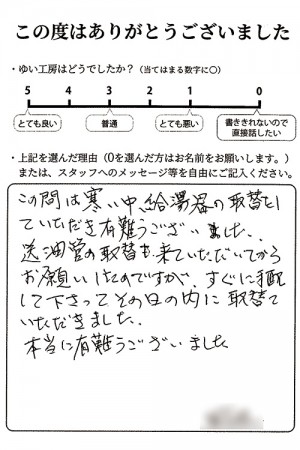 この度はありがとうございました
・ゆい工房はどうでしたか?(当てはまる数字に○)
5 4 3 2 1 0
とても良い 普通 とても悪い 書ききれないので直接話したい
・上記を選んだ理由(0を選んだ方はお名前をお願いします。)
または、スタッフへのメッセージ等を自由にご記入ください。
この間は寒い中、給湯器の取替をし
ていただき有難うございました。
送油管の取替も来ていただいてから
お願いしたのですが、すぐに手配
して下さってその日の内に取替て
いただきました。
本当に有難うございました